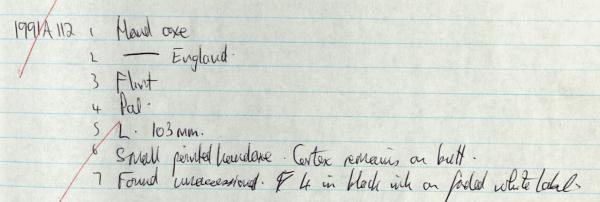 1991A112 1 Hand axe
2 —— England.
3 Flint
4 Pal.
5 L. 103mm.
6 Small pointed handaxe. Cortex remains on butt.
7 Found unaccessioned. 4 in black ink on faded white label.